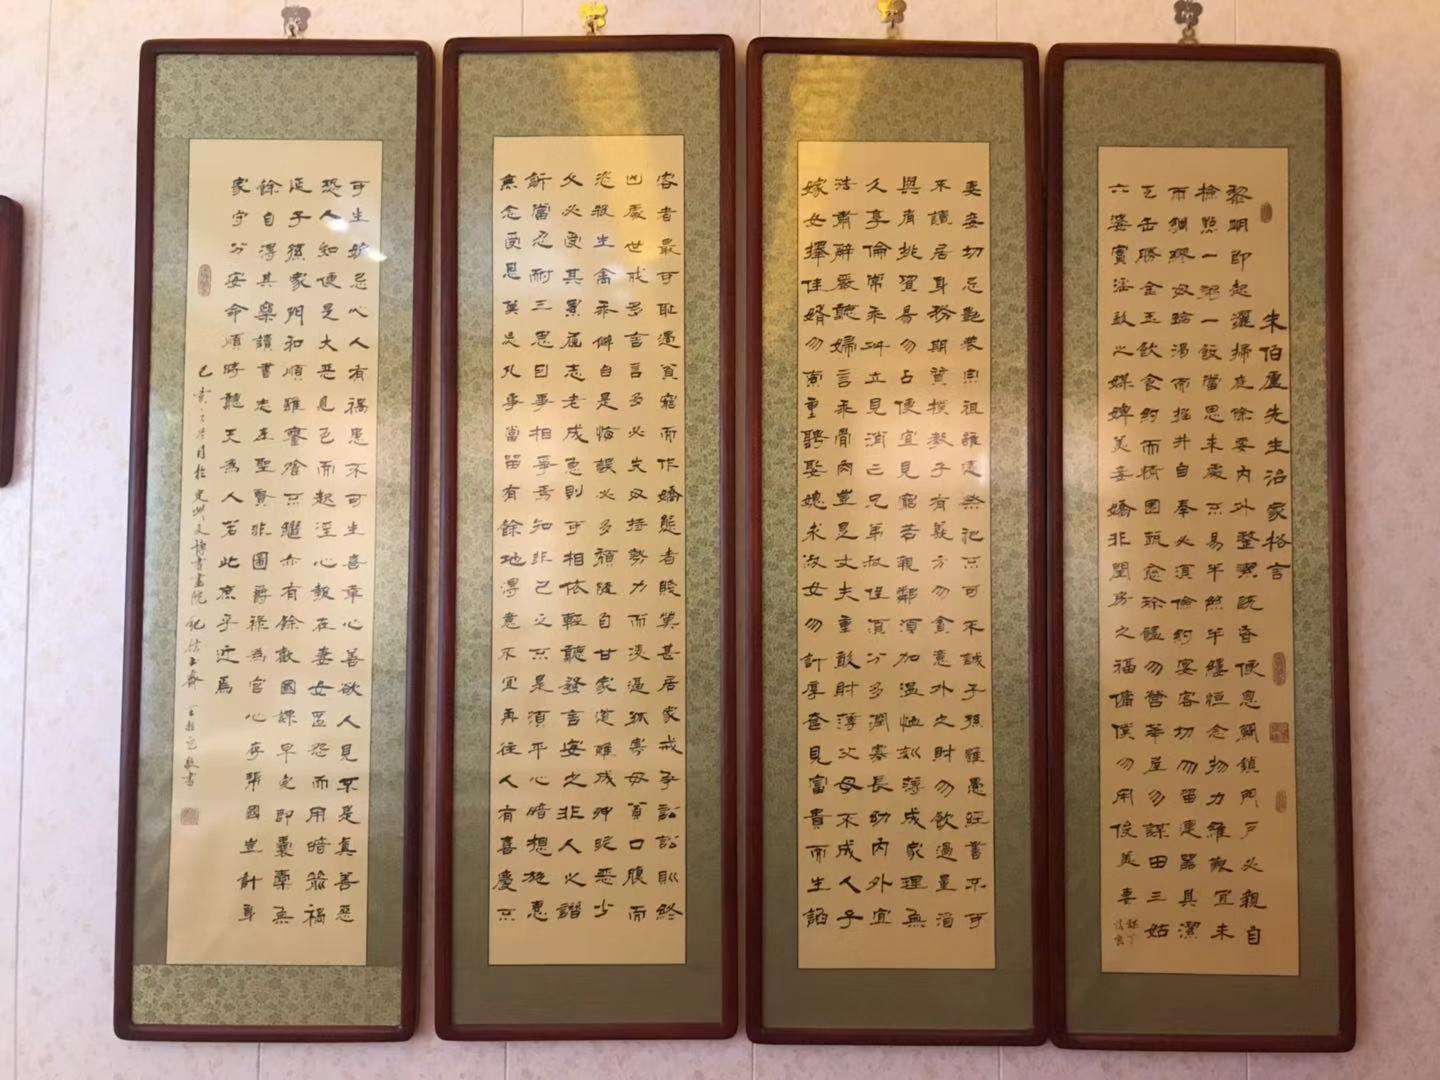 朱伯廬先生治家格言
黎明即起灑掃庭除要內外整潔既昏便息關鎖門戶必親自
檢點一粥一飯當思來處不易半絲半縷恒念物力維艱宜未
雨綢繆毋臨渴而掘井自奉必須儉約宴客切勿留連器具潔
瓦缶勝金玉飲食約而精園蔬愈珍饈勿營華屋勿謀田三姑
六婆實淫之媒婢美妾嬌非閨房之福傭僕勿用俊美妻
妻妾切忌艷裝宗祖雖遠祭祀不可不誠子孫雖愚經書不可
不讀居身務期質樸教子有義方勿貪意外之財勿飲過量酒
與肩挑貿易勿占便宜見窮苦親鄰須加溫恤刻薄成家理無
久享倫常乖舛立見消亡兄弟叔侄須分多潤寡長幼內外宜
法肅辭嚴聽婦言乖骨肉豈是丈夫重財薄父母不成人子
嫁女擇佳婿勿索重聘娶媳求淑女勿計厚奩見富貴而生諂
容者最可恥遇貧窮而作驕態者賤莫甚居家戒爭訟訟則終
凶處世戒多言言多必失毋恃勢力而凌逼孤寡毋貪口腹而
恣殺生禽乖僻自是悔誤必多頹隳自甘家道難成狎昵惡少
久必受其累屈志老成急則可相依輕聽發言安之非人之譖
訴當忍耐三思因事相爭焉知非己之不是須平心暗想施惠
無念受恩莫忘凡事當留有餘地得意不宜再往人有喜慶不
可生妒忌心人有禍患不可生喜幸心善欲人見不是真善惡
恐人知便是大惡見色而起淫心報在妻女匿怨而用暗箭禍
延子孫家門和順雖饔飧不繼亦有餘歡國課早完即囊橐無
餘自得其樂讀書志在聖賢非圖爵祿為官心存邦國豈計身
家守分安命順時聽天為人若此庶乎近焉
己亥月於定州文博書畫院敬書